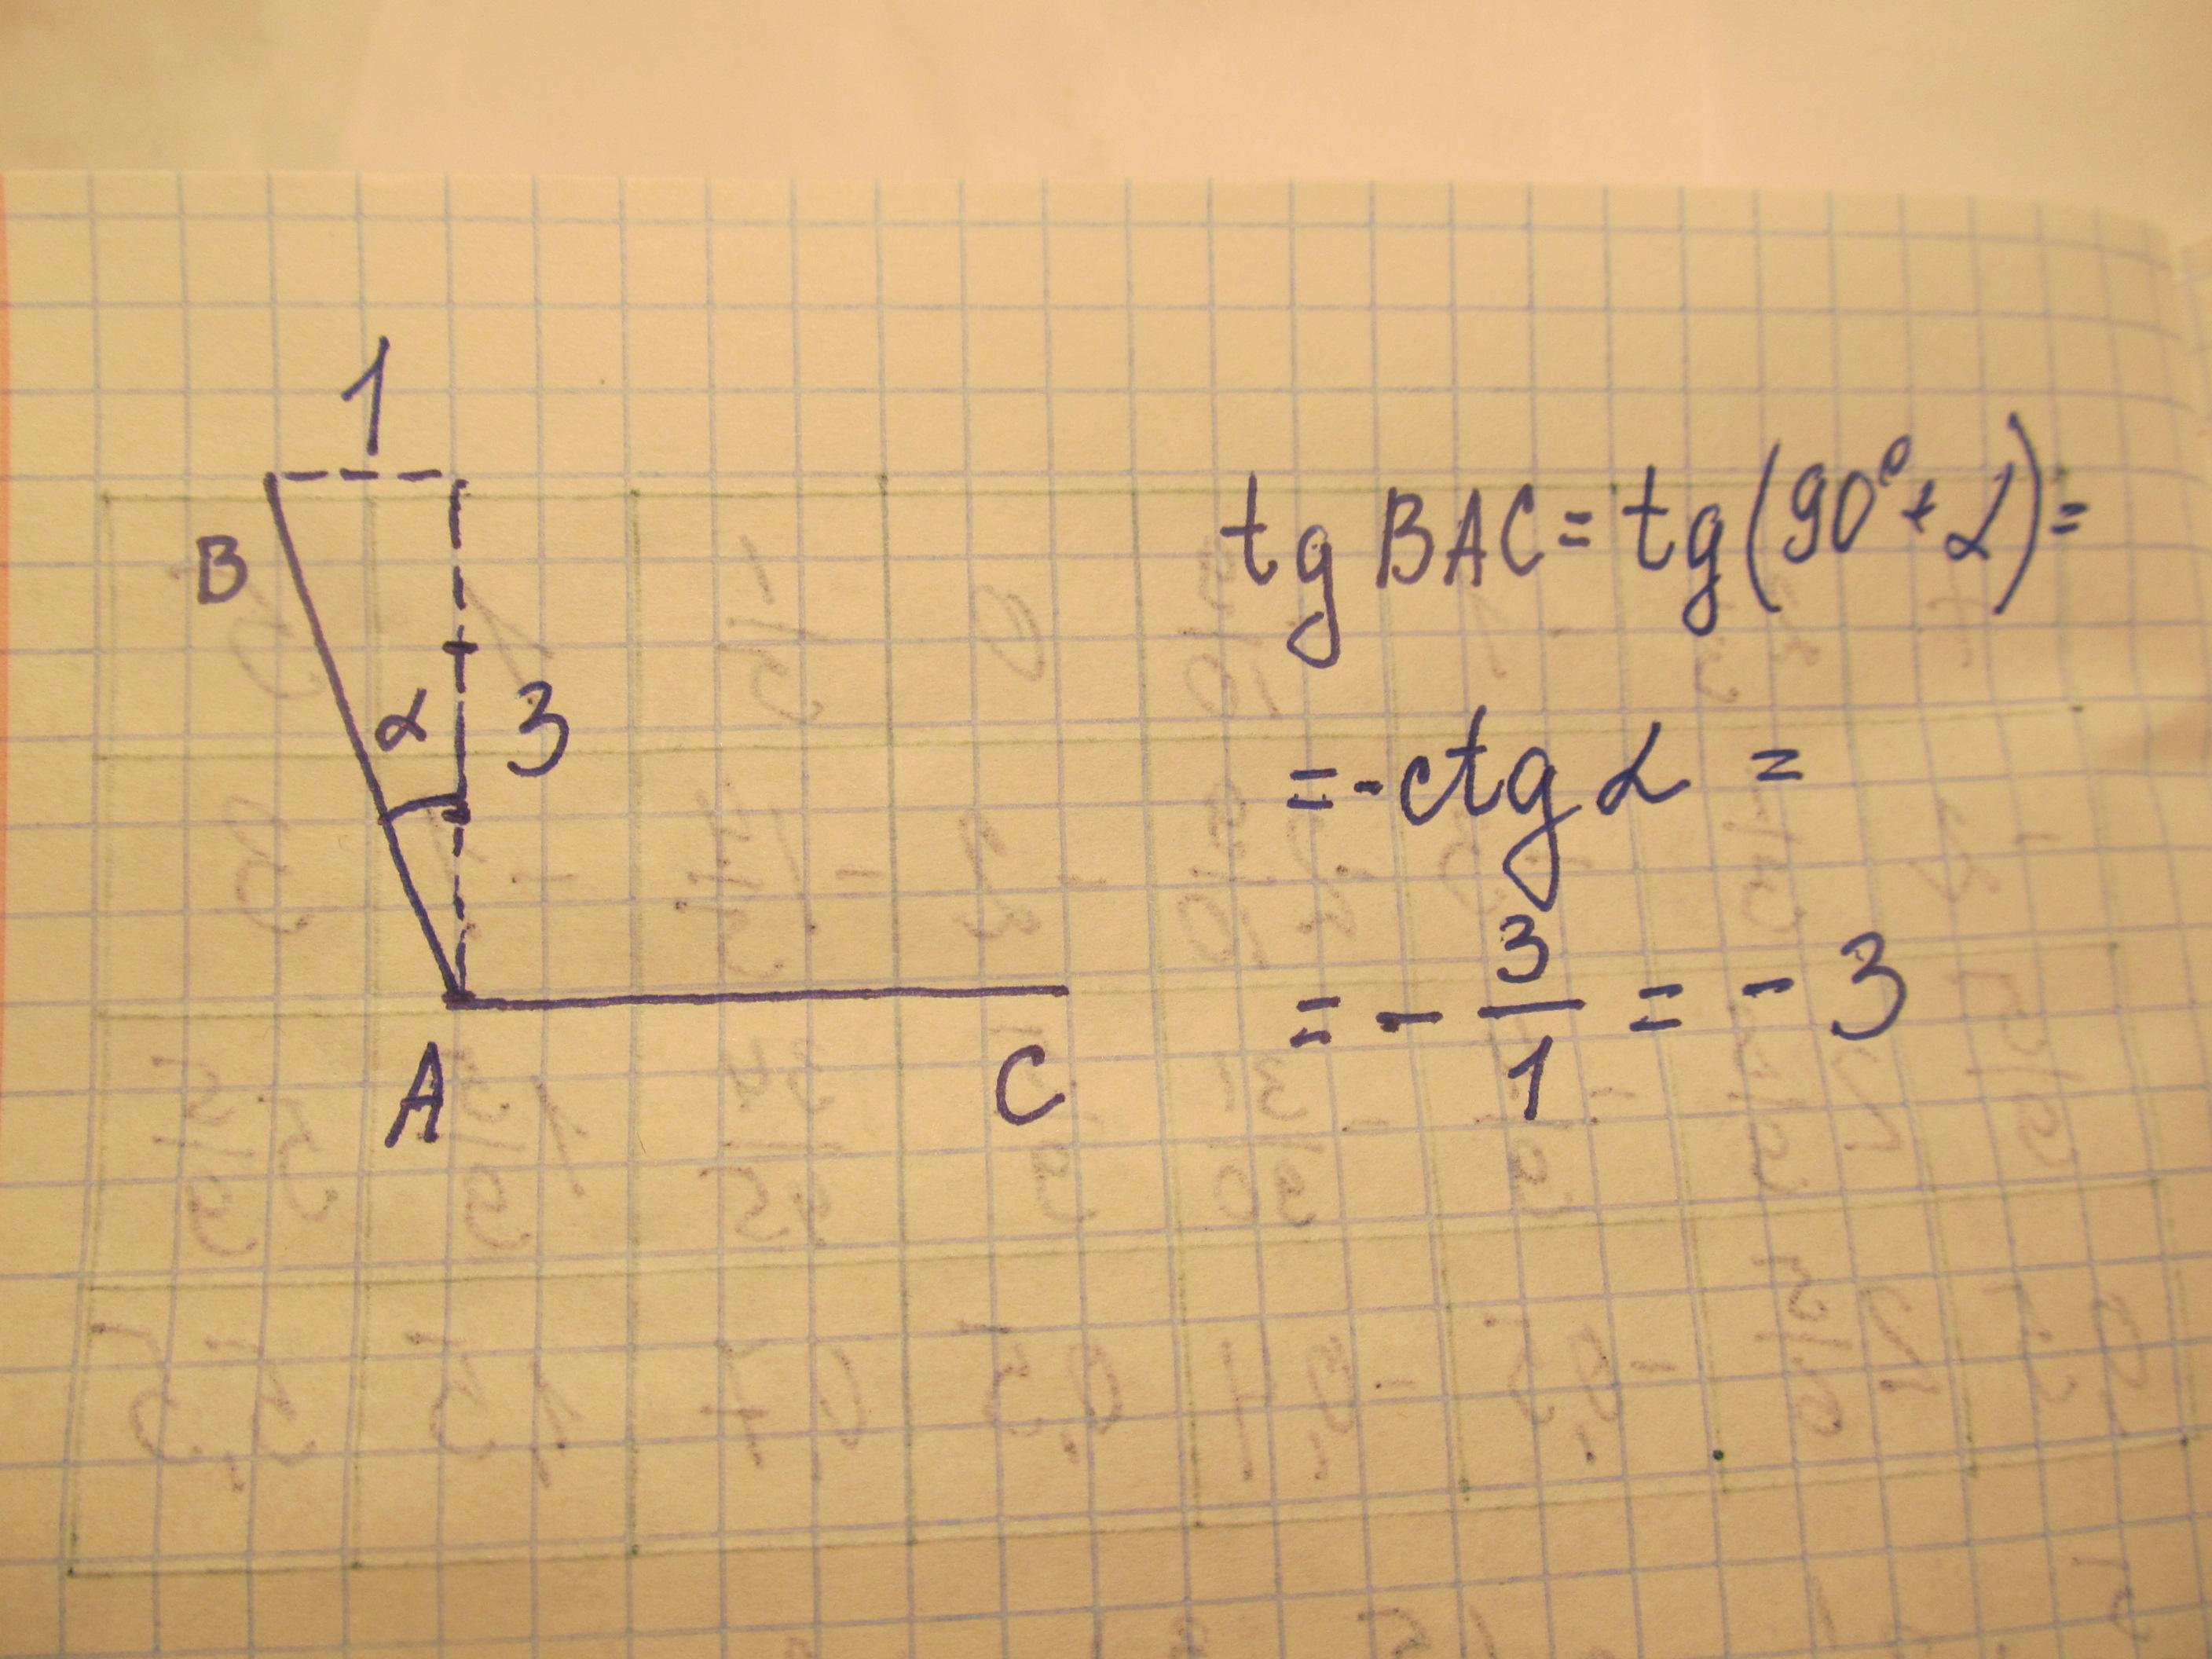 1
B
α
3
A
C
tg BAC = tg(90° + α) =
= - ctg α =
= - 3/1 = - 3